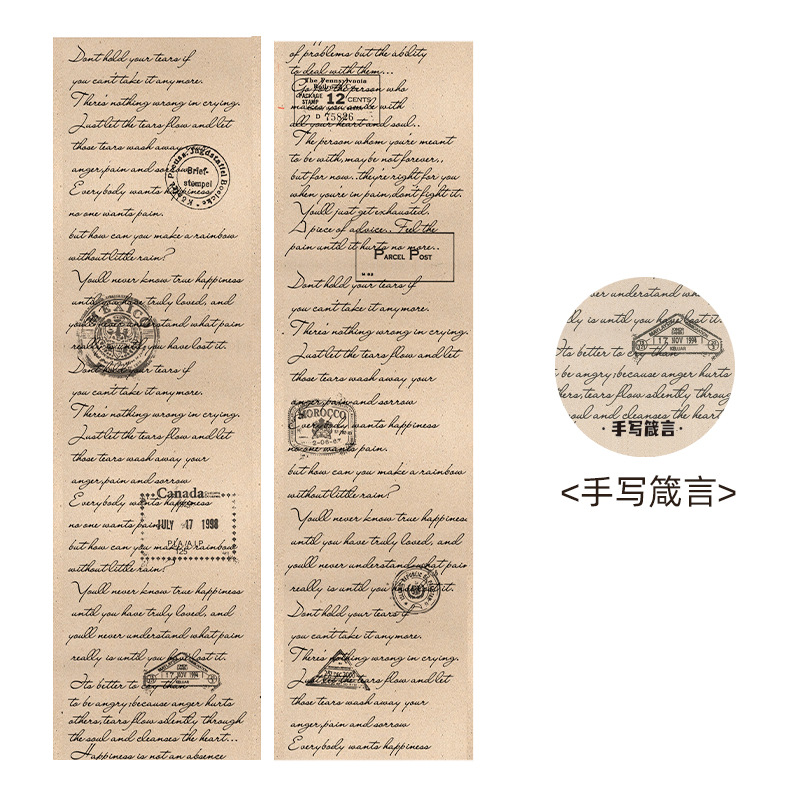 Dont hold your tears if
you cant take it anymore.
There's nothing wrong in crying.
Just let the tears flow and let
those tears wash away your
anger,pain and sorrow
Everybody wants happiness
no one wants pain.
but how can you make a rainbow
without little rain?
You'll never know true happiness
until you have truly loved, and
youll never understand what pain
really is until you have lost it.
Dont hold your tears if
you cant take it anymore.
There's nothing wrong in crying.
Just let the tears flow and let
those tears wash away your
anger,pain and sorrow
Everybody wants happiness
no one wants pain.
but how can you make a rainbow
without little rain?
You'll never know true happiness
until you have truly loved, and
youll never understand what pain
really is until you have lost it.
Its better to cry than
to be angry;because anger hurts
others,tears flow silently through
the soul and cleanses the heart...
Happiness is not an absence
Brief-
stempel
MEXICO
Canada
JULY 17 1998
PLA/ALP
125
17 NOV 1994
KELUAR
of problems but the ability
to deal with them...
Go for the person who
makes you smile with
all your heart and soul..
The person whom you're meant
to be with,maybe not forever..
but for now..they're right for you
when you're in pain,dont fight it.
You'll just get exhausted.
A piece of advice.. Feel the
pain until it hurts no more..
Dont hold your tears if
you cant take it anymore.
There's nothing wrong in crying.
Just let the tears flow and let
those tears wash away your
anger,pain and sorrow
Everybody wants happiness
no one wants pain.
but how can you make a rainbow
without little rain?
You'll never know true happiness
until you have truly loved, and
youll never understand what pain
really is until you have lost it.
Dont hold your tears if
you can't take it anymore.
There's nothing wrong in crying.
Just let the tears flow and let
those tears wash away your
anger,pain and sorrow
Everybody wants happiness
The Pennsylvania
PACKAGE
STAMP
12 CENTS
D 75826
PARCEL POST
MOROCCO
2-06-87
ver understand wh
ly is until you have lost it.
Its better to cry than
be angry;because anger hurts
hers,tears flow silently throug
soul and cleanses the heart
17 NOV 1994
KELUAR
·手写箴言·
<手写箴言>